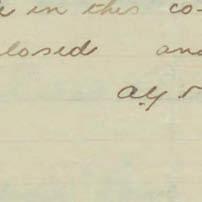 in this co-
losed and
a.y r